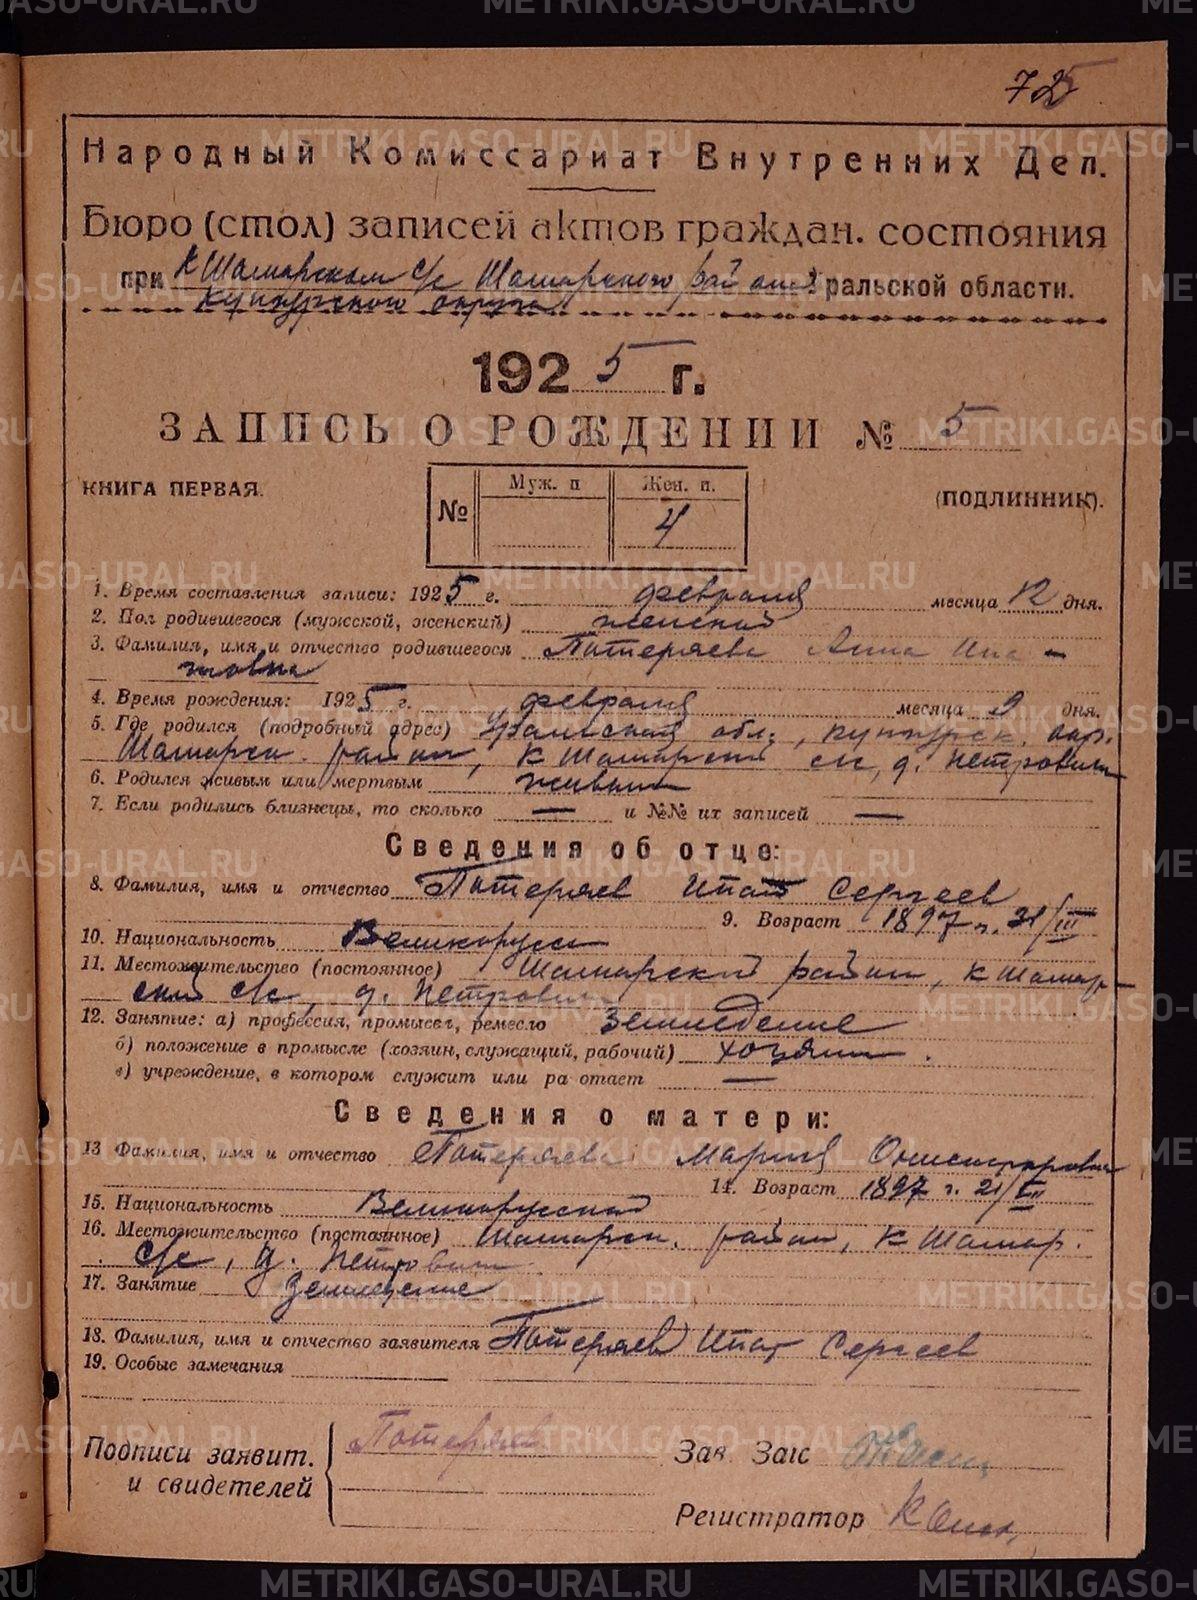 725
Народный Комиссариат Внутренних Дел.
Бюро (стол) записей актов граждан. состояния
при К Шамарском с/с Шамарского района Уральской области.
Кунгурского округа
1925 г.
ЗАПИСЬ О РОЖДЕНИИ № 5
КНИГА ПЕРВАЯ.
№ Муж. п Жен. п.
4
(ПОДЛИННИК).
1. Время составления записи: 1925 г. февраля месяца 12 дня.
2. Пол родившегося (мужской, женский) женский
3. Фамилия, имя и отчество родившегося Потеряева Анна Ипа-
товна
4. Время рождения: 1925 г. февраля месяца 9 дня.
5. Где родился (подробный адрес) Уральская обл., Кунгурск. окр.
Шамарск. район, К Шамарский с/с, д. Петровили
6. Родился живым или мертвым живым
7. Если родились близнецы, то сколько — и №№ их записей —
Сведения об отце:
8. Фамилия, имя и отчество Потеряев Ипат Сергеев
9. Возраст 1897 г. 21/III
10. Национальность Великорусс
11. Местожительство (постоянное) Шамарский район, К Шамар-
ский с/с, д. Петровили
12. Занятие: а) профессия, промысел, ремесло Земледелие
б) положение в промысле (хозяин, служащий, рабочий) хозяин.
в) учреждение, в котором служит или ра отает —
Сведения о матери:
13 Фамилия, имя и отчество Потеряева Мария
14. Возраст 1897 г. 21/
15. Национальность Великорусской
16. Местожительство (постоянное) Шамарск. район, К Шамар.
с/с, д. Петровили
17. Занятие Земледелие
18. Фамилия, имя и отчество заявителя Потеряев Ипат Сергеев
19. Особые замечания
Подписи заявит.
и свидетелей
Потеряев
Зав. Загс
Регистратор
METRIKI.GASO-URAL.RU